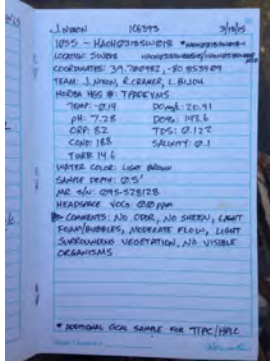 J. NIXON 106393 3/10/15
1055 - HACH0315SW018
LOCATION: SW018
COORDINATES: 39.760982, -80.853989
TEAM: J. NIXON, R. CRAMER, L. BIJOU
HORIBA MS #: TPADEVMS
TEMP: -0.14 DO mg/L: 20.91
pH: 7.28 DO%: 143.6
ORP: 82 TDS: 0.122
COND: 188 SALINITY: 0.1
TURB: 14.6
WATER COLOR: LIGHT BROWN
SAMPLE DEPTH: 0.5'
MR S/N: 095-528128
HEADSPACE VOCs: 0.0 ppm
COMMENTS: NO ODOR, NO SHEEN, LIGHT
FOAM/BUBBLES, MODERATE FLOW, LIGHT
SURROUNDING VEGETATION, NO VISIBLE
ORGANISMS
* ADDITIONAL SAMPLE FOR